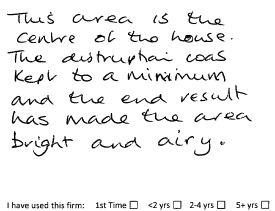 This area is the
centre of the house.
The distruptian was
kept to a minimum
and the end result
has made the area
bright and airy.
I have used this firm: 1st Time ☐ <2 yrs ☐ 2-4 yrs ☐ 5+ yrs ☐